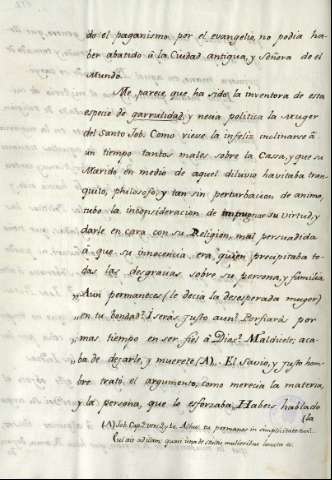 do el paganismo por el evangelio, no podia ha-
ber abatido â la Ciudad antigua, y Señora de el
Mundo.
Me parece que ha sido la inventora de esta
especie de garrulidad, y neua politica la Muger
del Santo Job. Como viese la infeliz inclinarse â
un tiempo tantos males sobre la Cassa, y que su
Marido en medio de aquel diluvio havitaba tran-
quilo, philosofo, y tan sin perturbacion de animo,
tubo la inconsideracion de impugnar su virtud, y
darle en cara con su Religion, mal persuadida
â que su innocencia era, quien precipitaba to-
das las desgracias sobre su persona, y familia
„ Aun permaneces (le decia la desesperada muger)
„ en tu bondad? I serás justo aun? Porfiará por
„ mas tiempo en ser fiel â Dios? Maldicele, aca-
„ ba de dejarle, y muerete (A). El savio, y justo hom-
bre trató el argumento, como merecia la materia,
y la persona, que lo esforzaba. Habeis hablado
(la
(A) Job. Cap. 2. vers. 9. Adhuc tu permanes in simplicitate tua?
quasi una de stultis mulieribus locuta